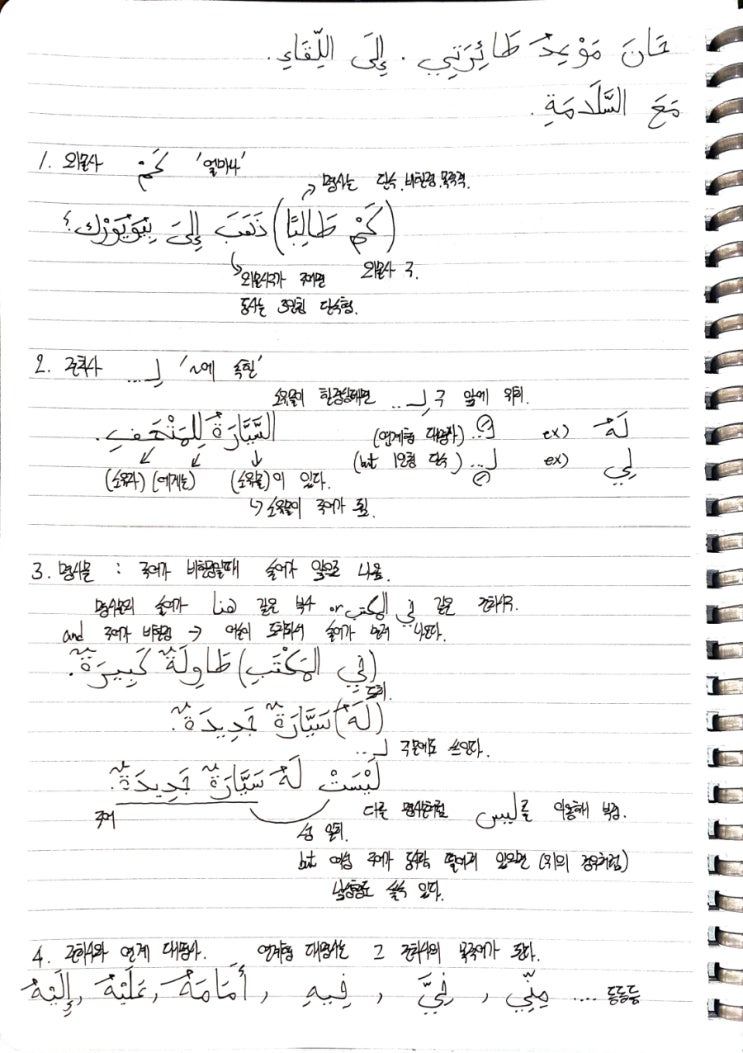 حَانَ مَوْعِدُ طَائِرَتِي. إِلَى اللِّقَاءِ.
مَعَ السَّلَامَةِ.
1. 의문사 كَمْ '얼마나'
명사는 단수.비한정.목적격.
(كَمْ طَالِبًا) ذَهَبَ إِلَى نِيُويُورْك؟
의문사구가 주어면 의문사 구.
동사는 3인칭 단수형.
2. 전치사 لِ... '~에 속한'
소유물이 한정상태면 ...لِ 구 앞에 위치.
السَّيَّارَةُ لِلمَتْحَفِ.
(연계형 대명사) ...لَ ex) لَهُ
(but 1인칭 단수) ...لِ ex) لِي
(소유자) (에게는) (소유물)이 있다.
↳ 소유물이 주어가 됨.
3. 명사문 : 주어가 비한정일때 술어가 앞으로 나옴.
명사문의 술어가 هنا 같은 부사 or في المكتب 같은 전치사구.
and 주어가 비한정 → 어순이 도치되서 술어가 먼저 나온다.
(فِي المَكْتَبِ) طَاوِلَةٌ كَبِيرَةٌ.
도치.
(لَهُ) سَيَّارَةٌ جَدِيدَةٌ.
...لِ 구문에도 쓰인다.
لَيْسَتْ لَهُ سَيَّارَةٌ جَدِيدَةٌ.
주어 다른 명사문처럼 ليس를 이용해 부정.
성 일치.
but 여성 주어가 동사랑 떨어져 있으면 (위의 경우처럼)
남성형도 쓸수 있다.
4. 전치사와 연계 대명사. 연계형 대명사는 그 전치사의 목적어가 된다.
مِنِّي, فِيَّ, فِيهِ, أَمَامَهُ, عَلَيْهُ, إِلَيْهُ .... 등등등